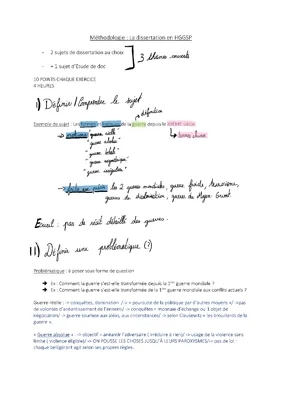 Méthodologie : La dissertation en HGGSP
- 2 sujets de dissertation au choix
- + 1 sujet d'Etude de doc
3 thèmes ouverts
10 POINTS CHAQUE EXERCICE
4 HEURES
I) Définir / Comprendre le sujet
définition
Exemple de sujet : Les formes de la guerre depuis le
"guerre civile"
"guerre totale"
"guerre asymétrique"
"guerre irrégulière"
les 2 guerres mondiales, guerre froide, terrorisme,
guerres de décolonisation, guerres du Moyen Orient.
Ecueil : pas de récit détaillé des guerres.
II) Définir une problématique (?)
Problématique : à poser sous forme de question
➔ Ex : Comment la guerre s'est-elle transformée depuis la 1ère guerre mondiale ?
➔ Ex : Comment la guerre s'est-elle transformée de la 1ère guerre mondiale aux conflits actuels ?
Guerre réelle : -> conquêtes, domination /-> « poursuite de la politique par d'autres moyens »/ ->pas
de volonté d'anéantissement de l'ennemi/ -> conquêtes = monnaie d'échange ou objet de
négociation/ -> guerre soumise aux aléas, aux circonstances/ -> selon Clausewitz « les brouillards de la
guerre ».
« Guerre absolue » : -> objectif = anéantir l'adversaire (réduire à rien)/ -> usage de la violence sans
limite (violence illégitime)/ -> ON POUSSE LES CHOSES JUSQU'À LEURS PAROXYSMES/-> pas de loi :
chaque belligérant agit selon ses propres règles.